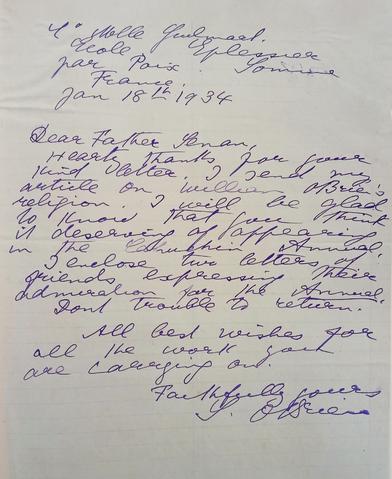 Melle Guilmart.
Ecole Eplessier
par Poix. Somme
France.
Jan 18th 1934
Dear Father Senan,
Hearty thanks for your
kind letter. I send my
article on William O'Brien's
religion. I will be glad
to know that you think
it deserving of appearing
in the Capuchin Annual.
I enclose two letters of
friends expressing their
admiration for the Annual.
Dont trouble to return.
All best wishes for
all the work you
are carrying on.
Faithfully yours
S. O'Brien